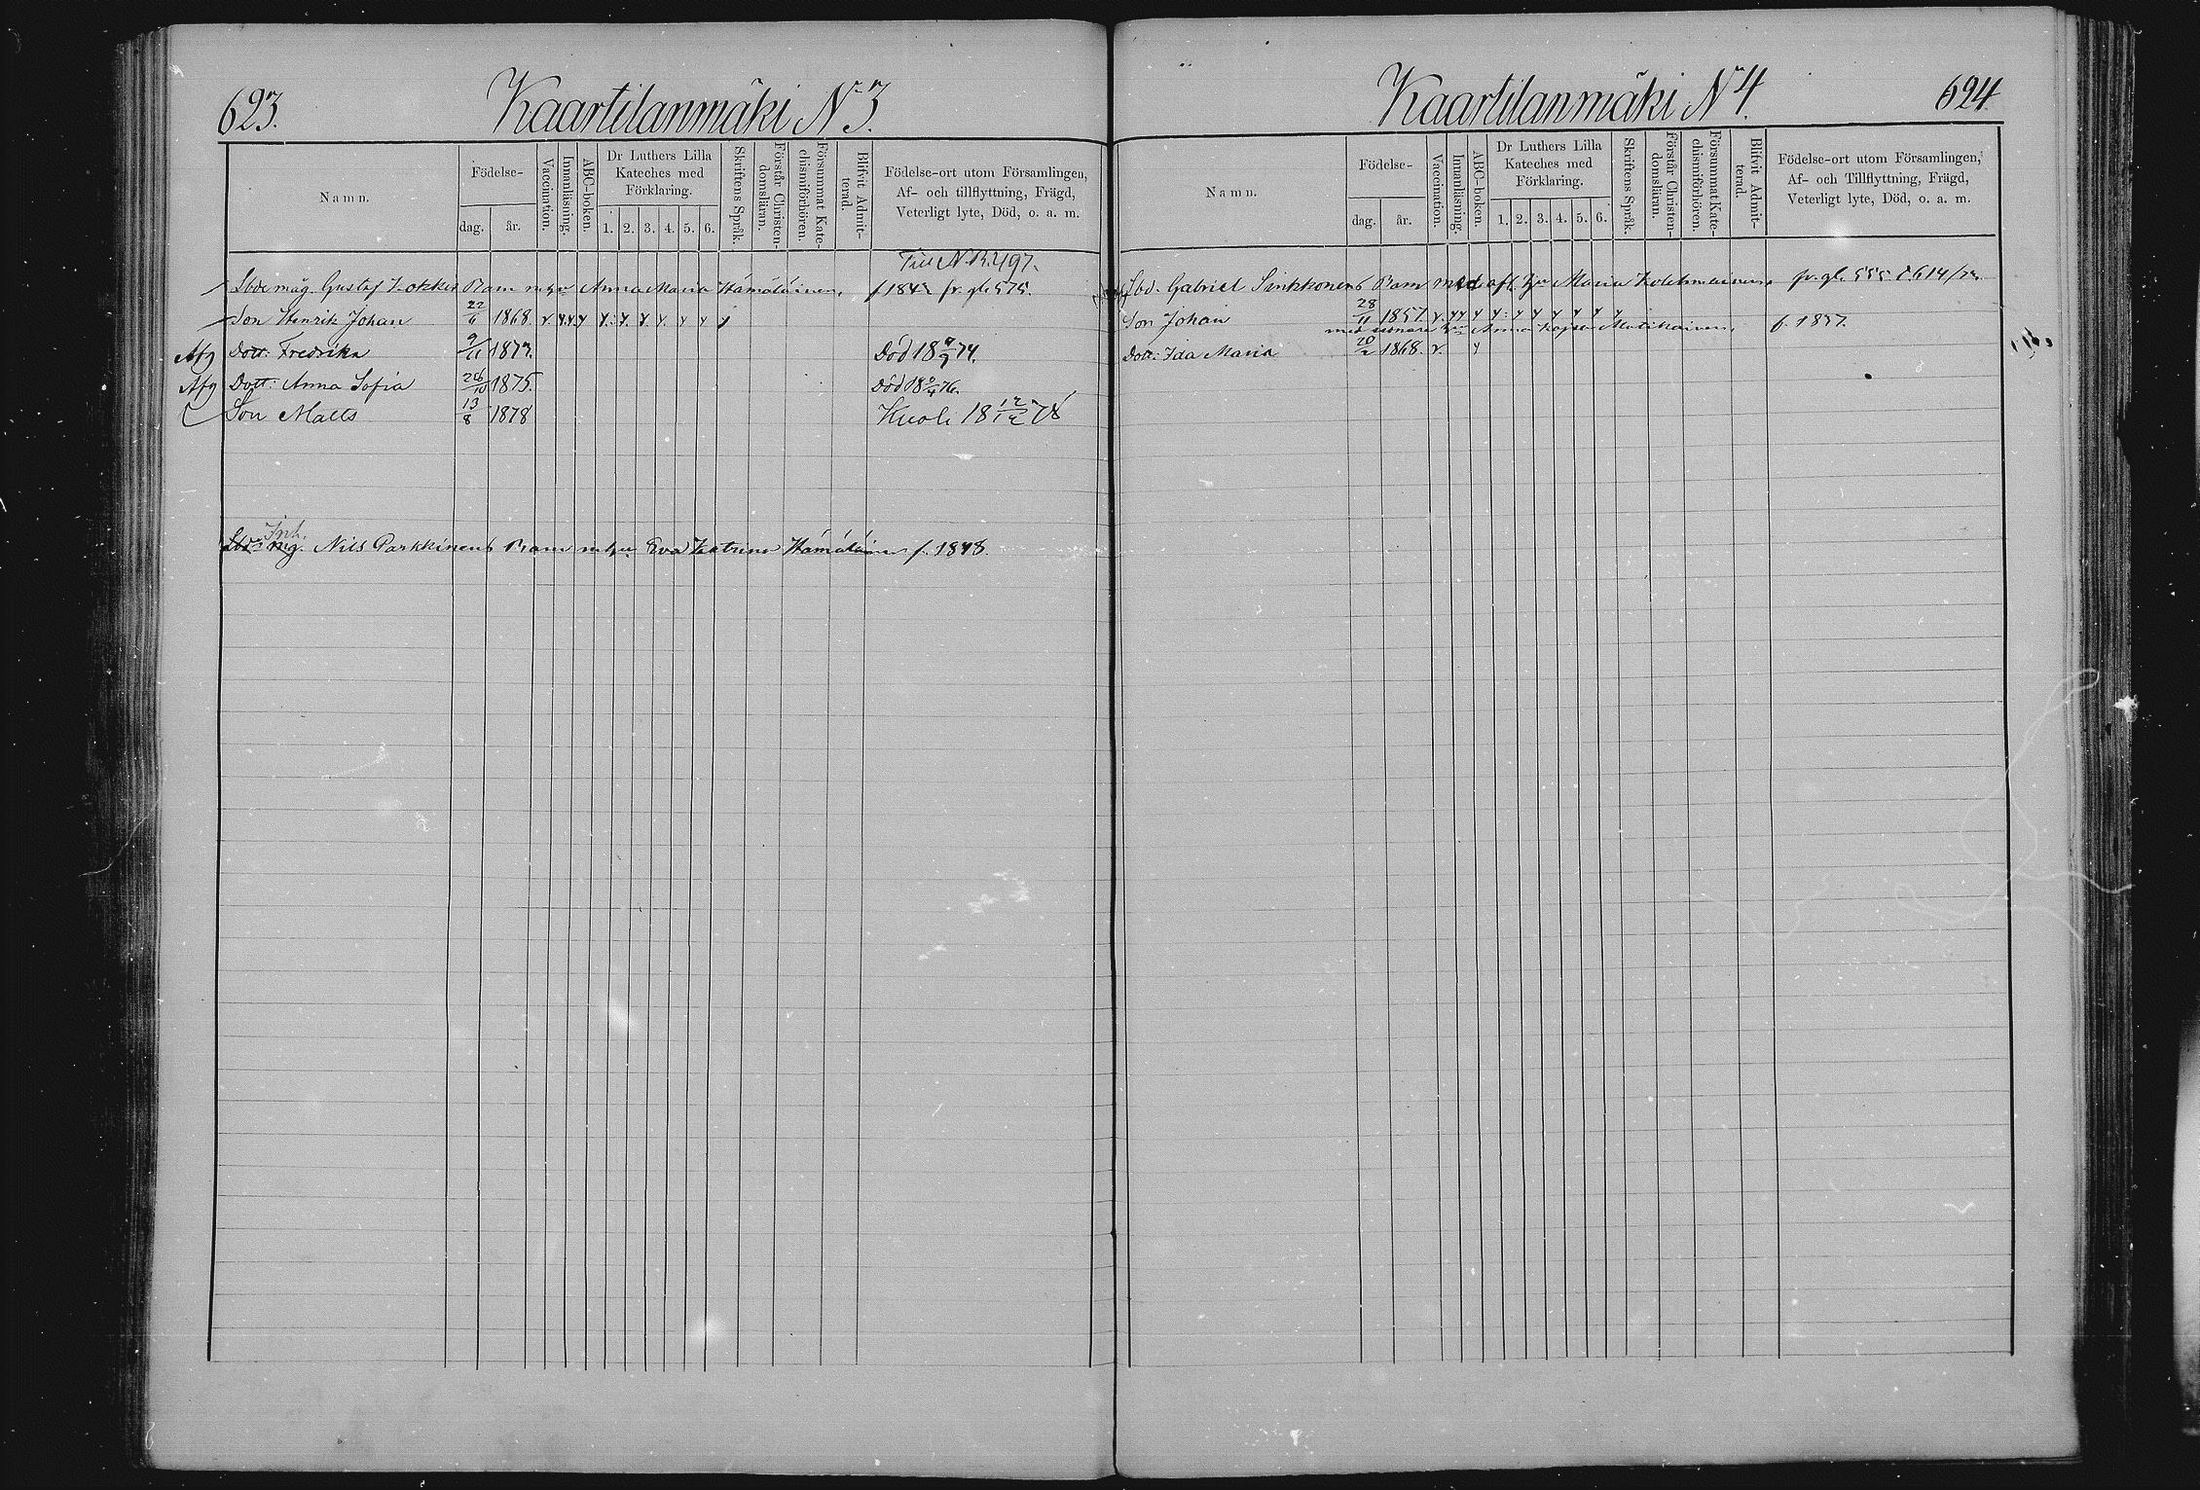 623.
Kaartilanmäki N:3.
Namn.
Födelse-
dag.
år.
Vaccination.
Innanläsning.
ABC-boken.
Dr Luthers Lilla
Kateches med
Förklaring.
1. 2. 3. 4. 5. 6.
Skriftens Språk.
Förstår Christen-
domsläran.
Försummat Kate-
chismiförhören.
Blifvit Admit-
terad.
Födelse-ort utom Församlingen,
Af- och tillflyttning, Frägd,
Veterligt lyte, Död, o. a. m.
Till N.B. 497.
Gustaf Barn Anna Maria Hämäläinen, fr. gl. 575.
Son Henrik Johan 22/6 1868. v. y y y y. y. y y. y y y
Afg Dott: Fredrika 9/11 1873. Död 18 9/9 74.
Afg Dott: Anna Sofia 26/10 1875. Död 18 76.
Son Matts 13/8 1878 Kuoli 18 12/12 78
Inh.
Nils Parkkinens Barn Eva Katrina Hämäläinen f. 1848.
624
Kaartilanmäki N:4.
Namn.
Födelse-
dag.
år.
Vaccination.
Innanläsning.
ABC-boken.
Dr Luthers Lilla
Kateches med
Förklaring.
1. 2. 3. 4. 5. 6.
Skriftens Språk.
Förstår Christen-
domsläran.
Försummat Kate-
chismiförhören.
Blifvit Admit-
terad.
Födelse-ort utom Församlingen,
Af- och Tillflyttning, Frägd,
Veterligt lyte, Död, o. a. m.
Gabriel Sinkkonens Barn med afl. Maria Kolehmainen, fr. gl. 555
Son Johan 28/11 1857. v. y y y y. y y y y y y
med senare Anna Kajsa f. 1837.
Dott: Ida Maria 20/2 1868. v. y